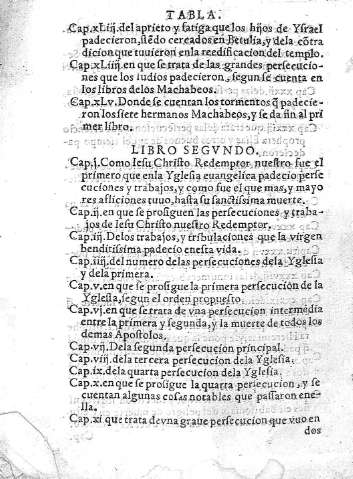 TABLA.
Cap.xLiij.del aprieto y fatiga que los hijos de Ysrael
padecieron, siẽdo cercados en Betulia, y dela cõtra
dicion que tuuieron enla reedificacion del templo.
Cap.xLiiij.en que se trata de las grandes persecucio-
nes que los Iudios padecieron, segun se cuenta en
los libros delos Machabeos.
Cap.xLv.Donde se cuentan los tormentos q̃ padecie-
ron los siete hermanos Machabeos, y se da fin al pri
mer libro.
LIBRO SEGVNDO.
Cap.j.Como Iesu Christo Redemptor nuestro fue el
primero que enla Yglesia euangelica padecio perse
cuciones y trabajos, y como fue el que mas, y mayo
res afliciones tuuo, hasta su sanctissima muerte.
Cap.ij.en que se prosiguen las persecuciones y traba-
jos de Iesu Christo nuestro Redemptor,
Cap.iij.Delos trabajos, y tribulaciones que la virgen
benditissima padecio enesta vida.
Cap.iiij.del numero delas persecuciones dela Yglesia
y dela primera.
Cap.v.en que se prosigue la primera persecucion de la
Yglesia, segun el orden propuesto.
Cap.vj.en que se trata de vna persecucion intermedia
entre la primera y segunda, y la muerte de todos los
demas Apostolos.
Cap.vij.Dela segunda persecucion principal.
Cap.viij.dela tercera persecucion dela Yglesia.
Cap.ix.dela quarta persecucion dela Yglesia.
Cap.x.en que se prosigue la quarta persecucion, y se
cuentan algunas cosas notables que passaron ene-
lla.
Cap.xi que trata devna graue persecucion que vuo en
dos